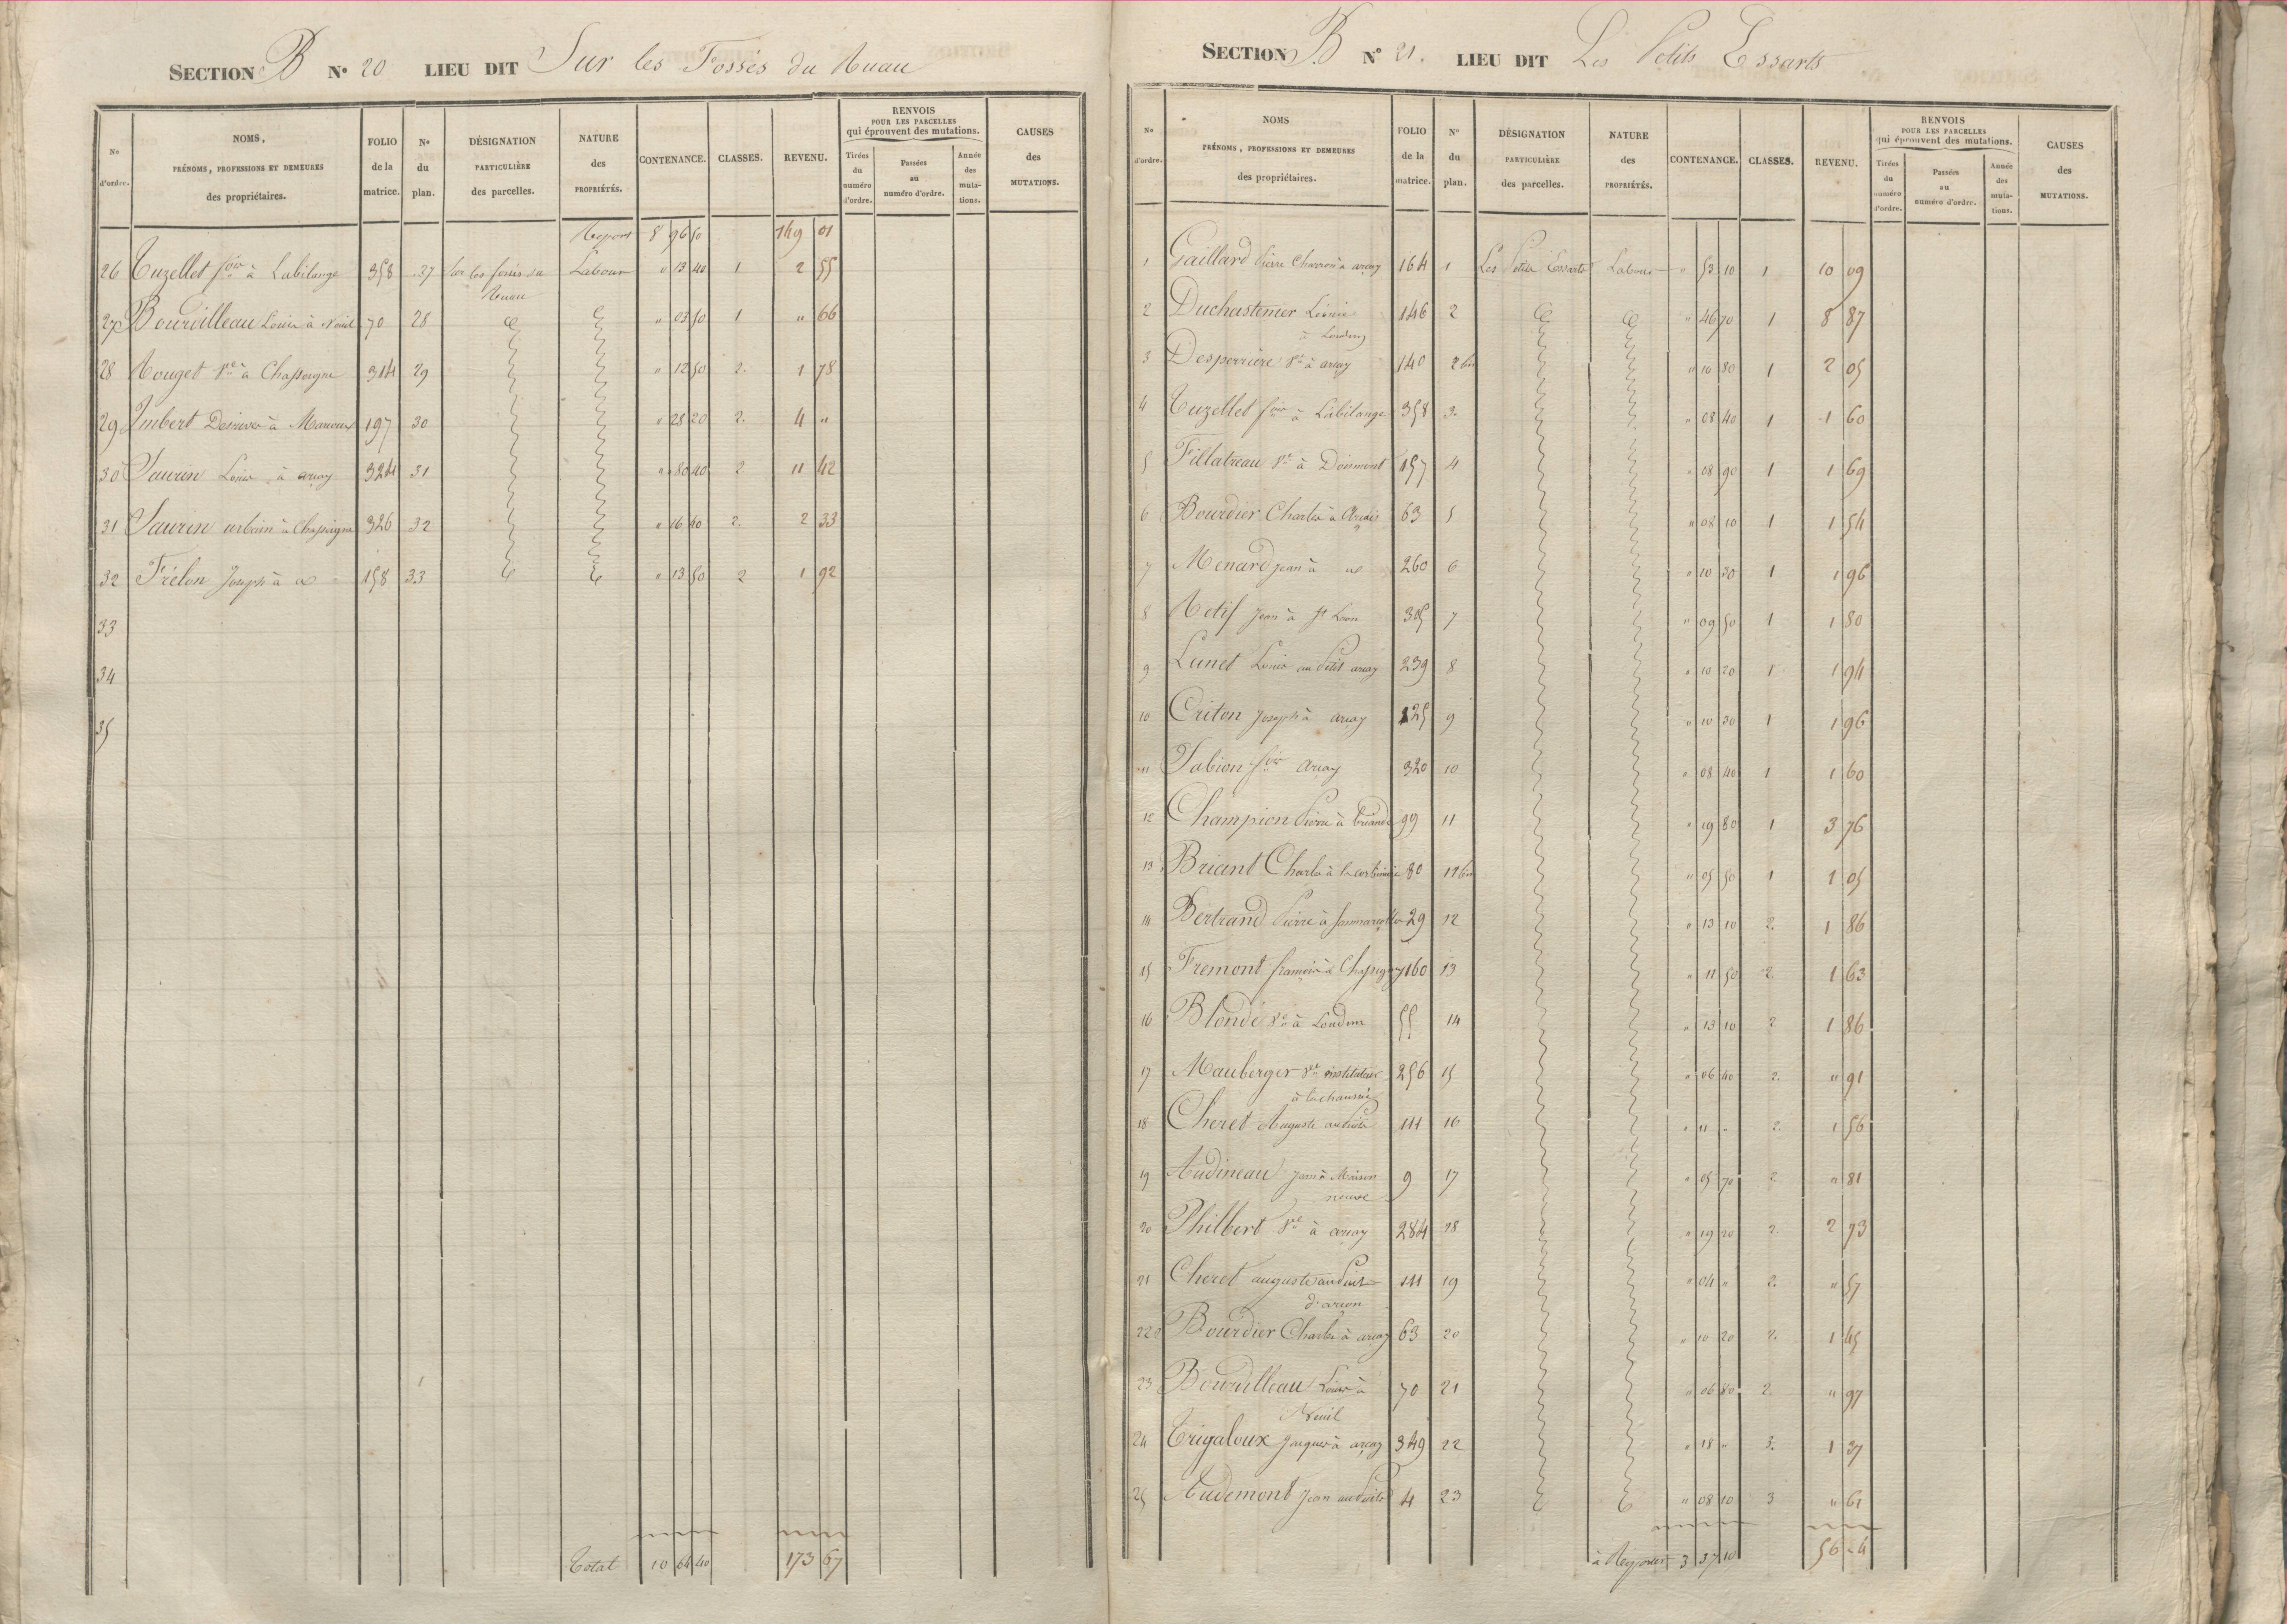 SECTION B N° 20 LIEU DIT Sur les Fossés du Ruau
N° d'ordre.
NOMS, PRÉNOMS, PROFESSIONS ET DEMEURES des propriétaires.
FOLIO de la matrice.
N° du plan.
DÉSIGNATION PARTICULIÈRE des parcelles.
NATURE des PROPRIÉTÉS.
CONTENANCE.
CLASSES.
REVENU.
RENVOIS POUR LES PARCELLES qui éprouvent des mutations.
Tirées du numéro d'ordre.
Passées au numéro d'ordre.
Année des mutations.
CAUSES des MUTATIONS.
Report 8 96 50 149 01
26 Tuzellet à Labilange 358 37 Sur les fossés du Labour " 13 40 1 2 55
Ruau
27 Bourdilleau Louis à Neuil 70 28 " 03 50 1 " 66
28 Rouget à Chassigne 314 29 " 12 50 2. 1 78
29 Imbert à 197 30 " 28 20 2. 4 "
30 Saurin Louis à arçay 324 31 " 80 40 2 11 42
31 Saurin urbain à Chassigne 326 32 " 16 40 2. 2 33
32 Frélon Joseph à 158 33 " 13 50 2 1 92
33
34
35
Total 10 64 40 173 67
SECTION B N° 21. LIEU DIT Les Petits Essarts
N° d'ordre.
NOMS PRÉNOMS, PROFESSIONS ET DEMEURES des propriétaires.
FOLIO de la matrice.
N° du plan.
DÉSIGNATION PARTICULIÈRE des parcelles.
NATURE des PROPRIÉTÉS.
CONTENANCE.
CLASSES.
REVENU.
RENVOIS POUR LES PARCELLES qui éprouvent des mutations.
Tirées du numéro d'ordre.
Passées au numéro d'ordre.
Année des mutations.
CAUSES des MUTATIONS.
1 Gaillard Pierre à arçay 164 1 Les Petits Essarts Labour " 53 10 1 10 09
2 Duchastenier 146 2 " 46 70 1 8 87
à Loudun
3 Desperriere à arçay 140 2 bis " 10 80 1 2 05
4 Tuzellet à Labilange 358 3. " 08 40 1 1 60
5 Fillatreau à 157 4 " 08 90 1 1 69
6 Bourdier Charles à 63 5 " 08 10 1 1 54
7 Menard jean à 260 6 " 10 30 1 1 96
8 Retif Jean à St Léon 305 7 " 09 50 1 1 80
9 Lunet Louis au Petit arçay 239 8 " 10 20 1 1 94
10 Criton Joseph à arçay 125 9 " 10 30 1 1 96
11 Sabion arçay 320 10 " 08 40 1 1 60
12 Champion Pierre à 99 11 " 19 80 1 3 76
13 Briant Charles à 80 11 bis " 05 50 1 1 05
14 Bertrand Pierre à 29 12 " 13 10 2. 1 86
15 Fremont françois à 160 13 " 11 50 2. 1 63
16 Blondé à Loudun 55 14 " 13 10 2 1 86
17 Mauberger instituteur 256 15 " 06 40 2. " 91
à la chaussée
18 Cheret Auguste au Puits 111 16 " 11 " 2. 1 56
19 Audineau Jean à Maison 9 17 " 05 70 2. " 81
neuve
20 Philbert à arçay 284 18 " 19 20 2. 2 73
21 Cheret auguste au Puits 111 19 " 04 " 2. " 57
22 Bourdier Charles à arçay 63 20 " 10 20 2. 1 45
23 Bourdilleau Louis à 70 21 " 06 80 2. " 97
Neuil
24 Trigaloux Jacques à arçay 349 22 " 18 " 3. 1 37
25 Audemont Jean au Puits 4 23 " 08 10 3 " 61
à Reporter 3 37 10 56